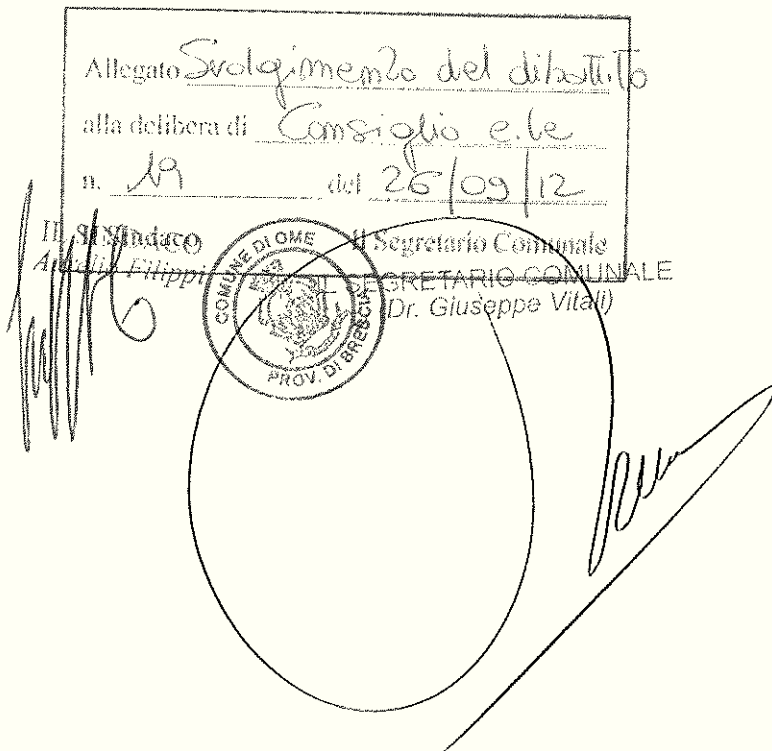 Allegato Svolgimento del dibattito
alla delibera di Consiglio c.le
n. 19 del 26/09/12
IL SINDACO Il Sindaco Il Segretario Comunale
Aurelio Filippi IL SEGRETARIO COMUNALE
(Dr. Giuseppe Vitali)
COMUNE DI OME
PROV. DI BRESCIA